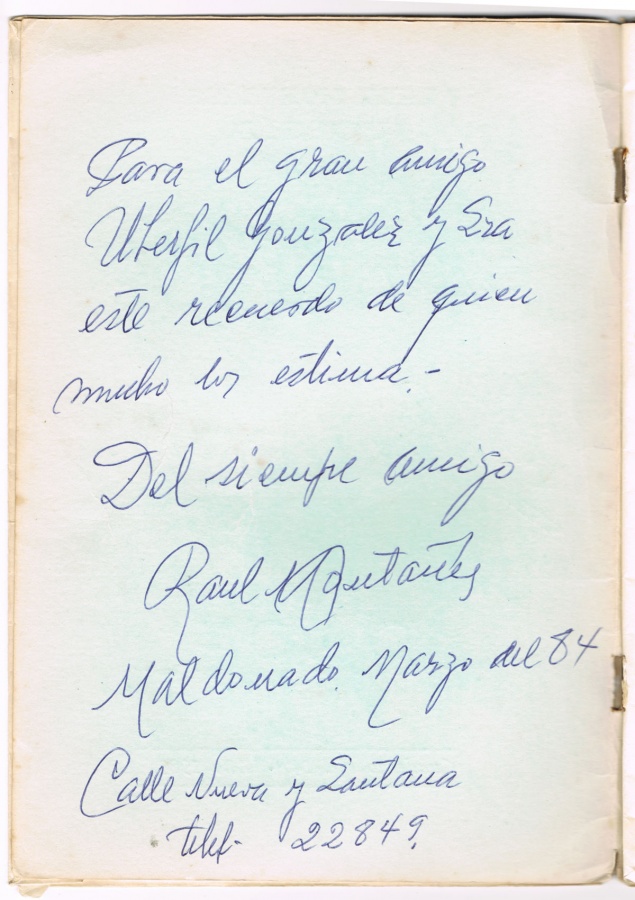 Para el gran amigo
Uberfil Gonzalez y Sra
este recuerdo de quien
mucho los estima.-
Del siempre amigo
Raul Montañés
Maldonado. Marzo del 84
Calle Nueva y Santana
telef. 22849.